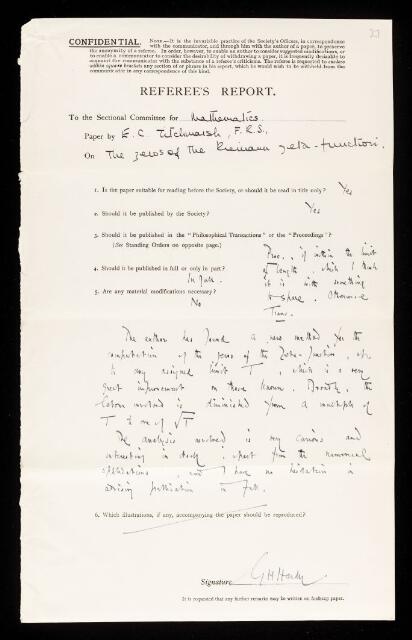 CONFIDENTIAL.
NOTE.—It is the invariable practice of the Society's Officers, in correspondence
with the communicator, and through him with the author of a paper, to preserve
the anonymity of a referee. In order, however, to enable an author to consider suggested modifications, or
to enable a communicator to consider the desirability of withdrawing a paper, it is frequently desirable to
acquaint the communicator with the substance of a referee's criticisms. The referee is requested to enclose
within square brackets any section of or phrase in his report, which he would wish to be withheld from the
communicator in any correspondence of this kind.
REFEREE'S REPORT.
To the Sectional Committee for Mathematics
Paper by E. C. Titchmarsh, F.R.S.,
On The zeros of the Riemann zeta-function.
1. Is the paper suitable for reading before the Society, or should it be read in title only? Yes
2. Should it be published by the Society? Yes
3. Should it be published in the "Philosophical Transactions" or the "Proceedings"?
(See Standing Orders on opposite page.)
Proc., if within the limit
of length, which I think
it is with something
to spare. Otherwise
Trans.
4. Should it be published in full or only in part?
In full.
5. Are any material modifications necessary?
No
The author has found a new method for the
computation of the zeros of the Zeta-function, up
to any assigned limit T, which is a very
great improvement on those known. Broadly, the
labour involved is diminished from a multiple of
T to one of √T
The analysis involved is very curious and
interesting in itself, apart from the numerical
applications, and I have no hesitation in
advising publication in full.
6. Which illustrations, if any, accompanying the paper should be reproduced?
Signature G H Hardy
It is requested that any further remarks may be written on foolscap paper.